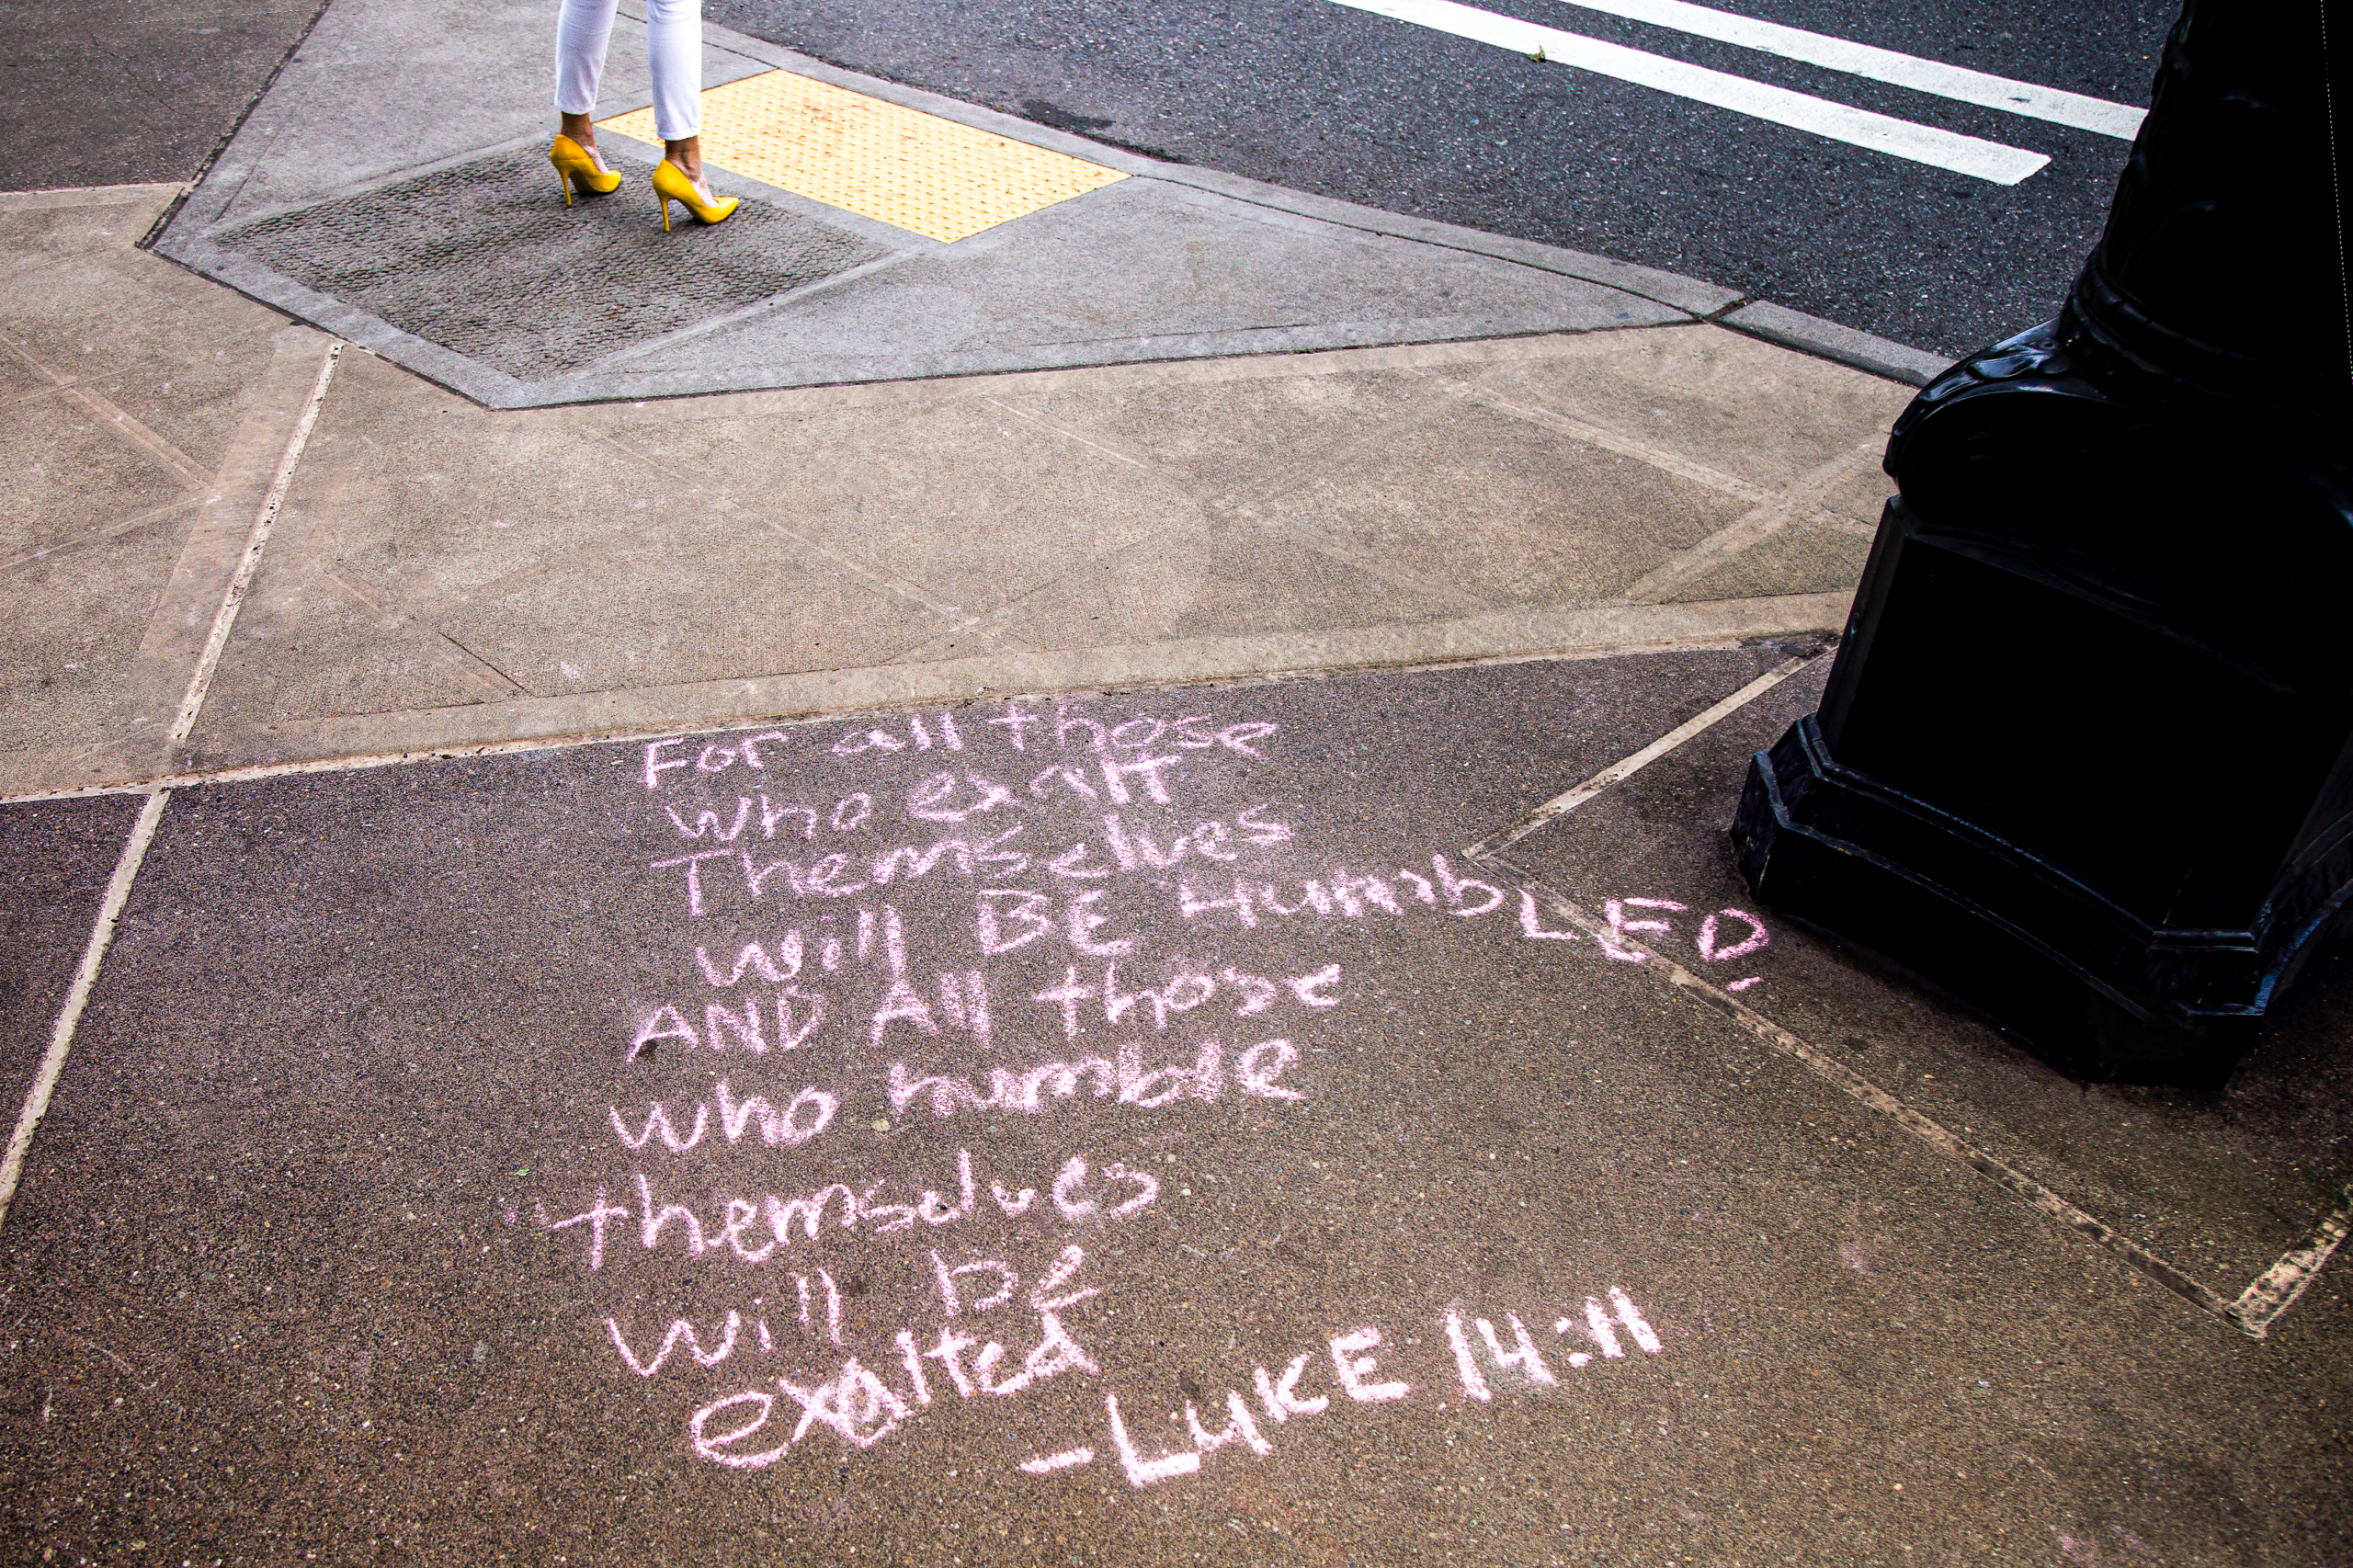 For all those
who exalt
Themselves
will BE HumbLED,
AND All those
who humble
themselves
will be
exalted
-LuKE 14:11